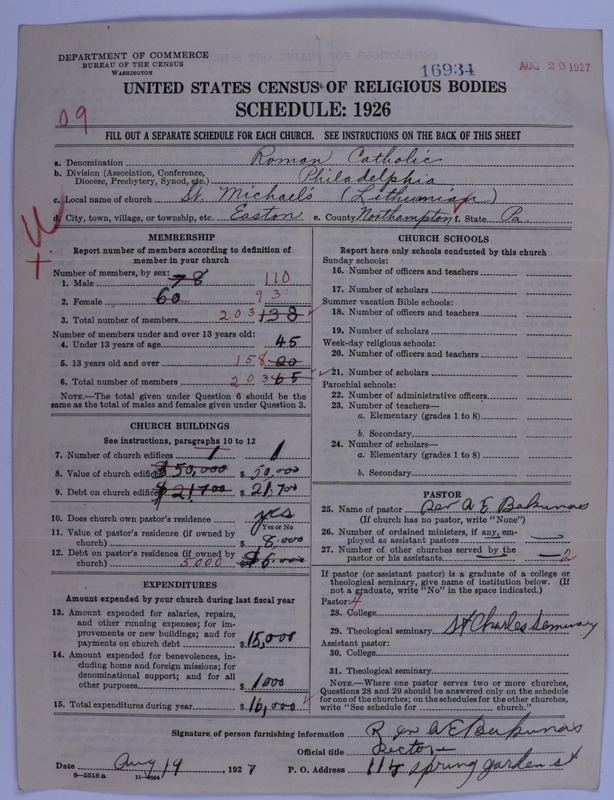 DEPARTMENT OF COMMERCE
BUREAU OF THE CENSUS
WASHINGTON
16934
AUG 20 1927
UNITED STATES CENSUS OF RELIGIOUS BODIES
SCHEDULE: 1926
09
FILL OUT A SEPARATE SCHEDULE FOR EACH CHURCH. SEE INSTRUCTIONS ON THE BACK OF THIS SHEET
a. Denomination Roman Catholic
b. Division (Association, Conference, Diocese, Presbytery, Synod, etc.) Philadelphia
c. Local name of church St. Michael's (Lithunian)
d. City, town, village, or township, etc. Easton e. County Northampton f. State Pa.
MEMBERSHIP
Report number of members according to definition of
member in your church
Number of members, by sex:
1. Male 78 110
2. Female 60 93
3. Total number of members 203 138
Number of members under and over 13 years old:
4. Under 13 years of age 45
5. 13 years old and over 158 20
6. Total number of members 203 65
NOTE.—The total given under Question 6 should be
same as the total of males and females given under Question 3.
CHURCH BUILDINGS
See instructions, paragraphs 10 to 12
7. Number of church edifices 1 1
8. Value of church edifices $50,000 $ 50,000
9. Debt on church edifices $21,700 $ 21,700
10. Does church own pastor's residence yes
Yes or No
11. Value of pastor's residence (if owned by
church) $ 8,000
12. Debt on pastor's residence (if owned by
church) 5000 $ 6,000
EXPENDITURES
Amount expended by your church during last fiscal year
13. Amount expended for salaries, repairs,
and other running expenses; for im-
provements or new buildings; and for
payments on church debt $ 15,000
14. Amount expended for benevolences, in-
cluding home and foreign missions; for
denominational support; and for all
other purposes $ 1000
15. Total expenditures during year $ 16,000
CHURCH SCHOOLS
Report here only schools conducted by this church
Sunday schools:
16. Number of officers and teachers
17. Number of scholars
Summer vacation Bible schools:
18. Number of officers and teachers
19. Number of scholars
Week-day religious schools:
20. Number of officers and teachers
21. Number of scholars
Parochial schools:
22. Number of administrative officers
23. Number of teachers—
a. Elementary (grades 1 to 8)
b. Secondary
24. Number of scholars—
a. Elementary (grades 1 to 8)
b. Secondary
PASTOR
25. Name of pastor Rev A E Bakunas
(If church has no pastor, write "None")
26. Number of ordained ministers, if any, em-
ployed as assistant pastors
27. Number of other churches served by the
pastor or his assistants 2
If pastor (or assistant pastor) is a graduate of a college or
theological seminary, give name of institution below. (If
not a graduate, write "No" in the space indicated.)
Pastor:
28. College
29. Theological seminary St Charles Seminary
Assistant pastor:
30. College
31. Theological seminary
NOTE.—Where one pastor serves two or more churches,
Questions 28 and 29 should be answered only on the schedule
for one of the churches; on the schedules for the other churches,
write "See schedule for church."
Signature of person furnishing information Rev A E Bakunas
Official title Rector
Date Aug 19, 1927 P. O. Address 1115 Spring garden st
8—5518a